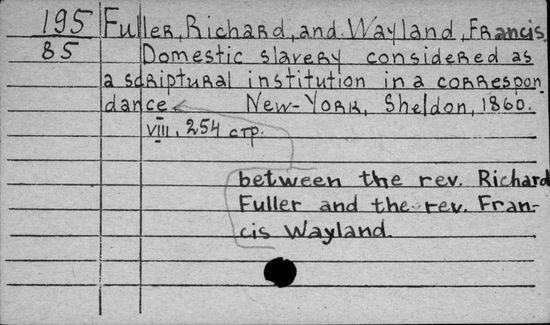 195 Fuller, Richard, and Wayland, Francis.
85 Domestic slavery considered as
a scriptural institution in a correspon
dance New-York, Sheldon, 1860.
VIII, 254 стр.
between the rev. Richard
Fuller and the rev. Fran-
cis Wayland.